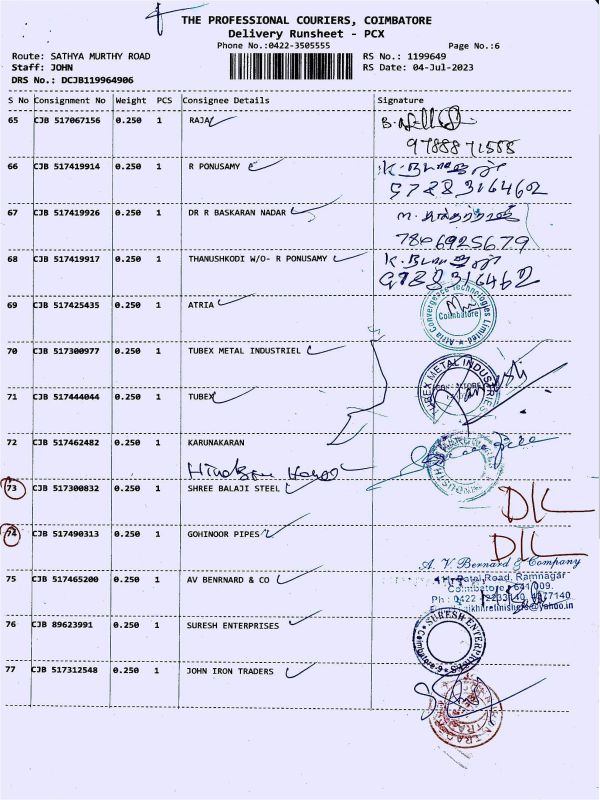 THE PROFESSIONAL COURIERS, COIMBATORE
Delivery Runsheet - PCX
Phone No.:0422-3505555
Page No.:6
Route: SATHYA MURTHY ROAD
RS No.: 1199649
Staff: JOHN
RS Date: 04-Jul-2023
DRS No.: DCJB119964906
S No Consignment No Weight PCS Consignee Details Signature
65 CJB 517067156 0.250 1 RAJA
9788871588
66 CJB 517419914 0.250 1 R PONUSAMY
9788316462
67 CJB 517419926 0.250 1 DR R BASKARAN NADAR
7806925679
68 CJB 517419917 0.250 1 THANUSHKODI W/O- R PONUSAMY
9788316462
69 CJB 517425435 0.250 1 ATRIA
Atria Convergence Technologies Limited
Coimbatore
70 CJB 517300977 0.250 1 TUBEX METAL INDUSTRIEL
TUBEX METAL INDUSTRIES
71 CJB 517444044 0.250 1 TUBEX
72 CJB 517462482 0.250 1 KARUNAKARAN
73 CJB 517300832 0.250 1 SHREE BALAJI STEEL
DK
74 CJB 517490313 0.250 1 GOHINOOR PIPES
DK
A. V. Bernard & Company
75 CJB 517465200 0.250 1 AV BENRNARD & CO
Patel Road, Ramnagar
Coimbatore - 641 009.
76 CJB 89623991 0.250 1 SURESH ENTERPRISES
SURESH ENTERPRISES
Coimbatore-9
77 CJB 517312548 0.250 1 JOHN IRON TRADERS